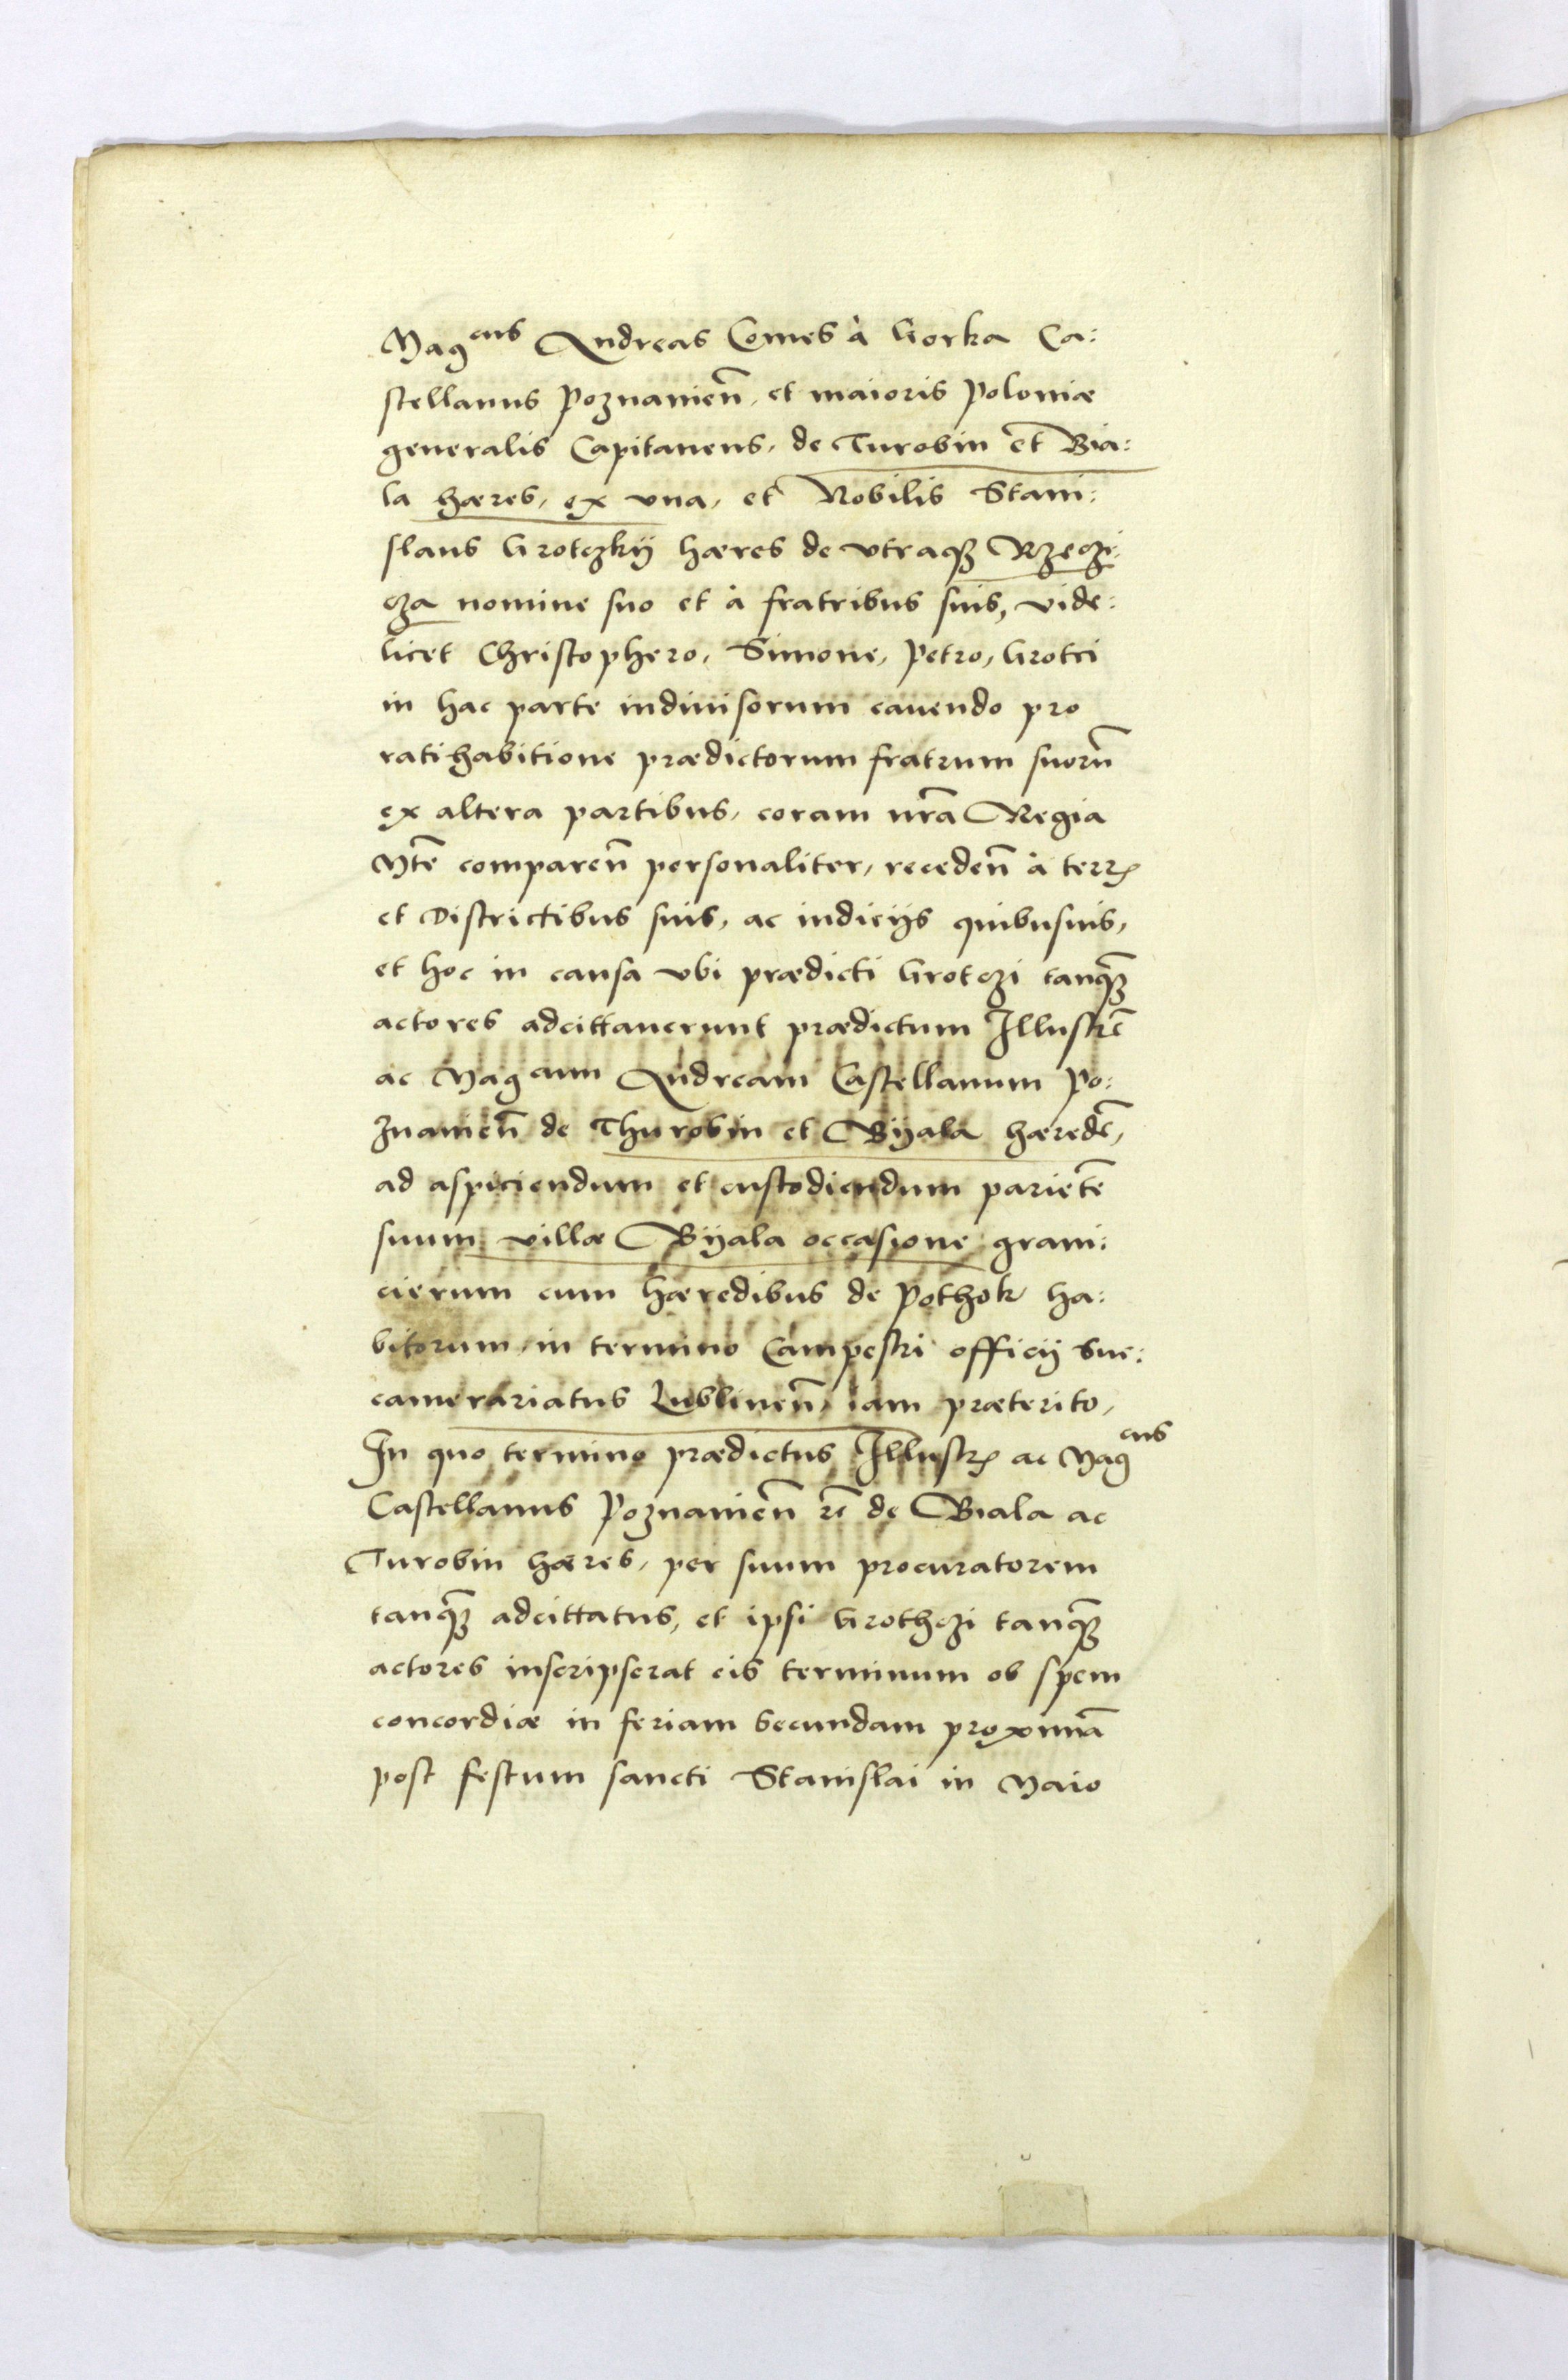 Mag^cus Andreas Comes à Gorka Ca:
stellanus Poznanien̄, et maioris Poloniæ
generalis Capitaneus, de Turobin et Bia:
la hæres, ex vna, et Nobilis Stani:
slaus Grotczkij hæres de vtraqȝ Rzeczi:
cza nomine suo et à fratribus suis, vide:
licet Christophero, Simone, Petro, Grotci
in hac parte indiuisorum cauendo pro
ratihabitione prædictorum fratrum suorū
ex altera partibus, coram nr̄a Regia
Mte comparen̄ personaliter, receden̄ à terrꝭ
et Districtibus suis, ac iudicijs quibusuis,
et hoc in causa vbi prædicti Grotczi tanqȝ
actores adcittauerunt prædictum Illustrē
ac Mag^cum Andream Castellanum Po:
znanien̄ de Thurobin et Bÿala hæredē,
ad aspiciendum et custodiendum parietē
suum villæ Bÿala occasione grani:
cierum cum hæredibus de Pothok ha:
bitorum, in termino Campestri officij suc:
camerariatus Lublinen̄, iam præterito,
In quo termino prædictus Illustrꝭ ac Mag^cus
Castellanus Poznanien̄ rc̄ de Biala ac
Turobin hæres, per suum procuratorem
tanqȝ adcittatus, et ipsi Grothczi tanqȝ
actores inscripserat eis terminum ob spem
concordiæ in feriam secundam proximā
post festum sancti Stanislai in Maio